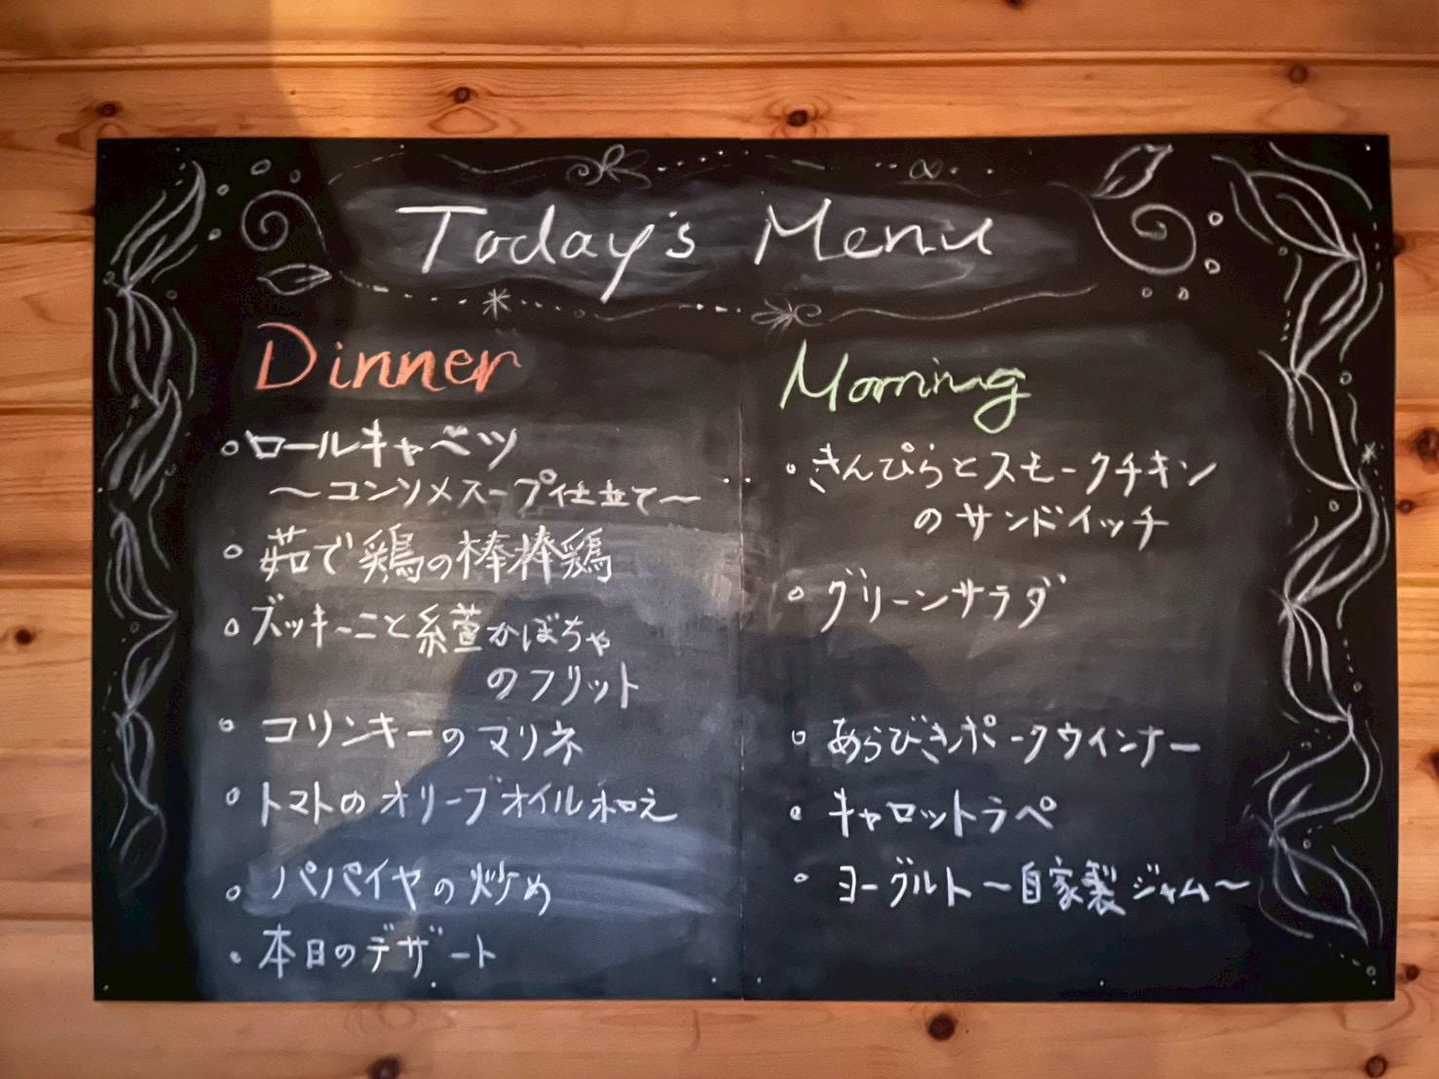 Today's Menu
Dinner
○ロールキャベツ
〜コンソメスープ仕立て〜
○茹で鶏の棒棒鶏
○ズッキーニと糸萱かぼちゃ
のフリット
○コリンキーのマリネ
○トマトのオリーブオイル和え
○パパイヤの炒め
○本日のデザート
Morning
○きんぴらとスモークチキン
のサンドイッチ
○グリーンサラダ
○あらびきポークウインナー
○キャロットラペ
○ヨーグルト〜自家製ジャム〜